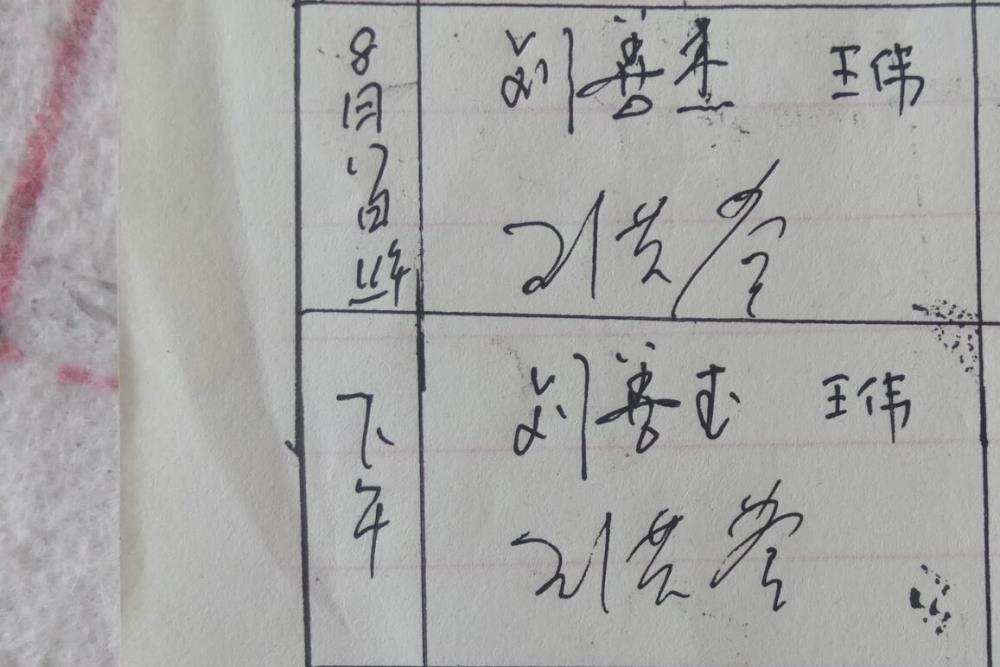 8月17日上午
刘善杰 王伟
刘芸
下午
刘善杰 王伟
刘芸